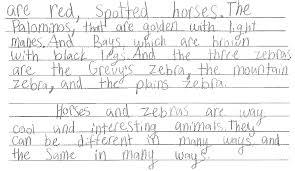 are red, spotted horses. The
Palominos, that are golden with light
manes. And Bays, which are brown
with black legs. And the three zebras
are the Grevy's zebra, the mountain
zebra, and the plains zebra.
Horses and zebras are way
cool and interesting animals. They
can be different in many ways and
the same in many ways.